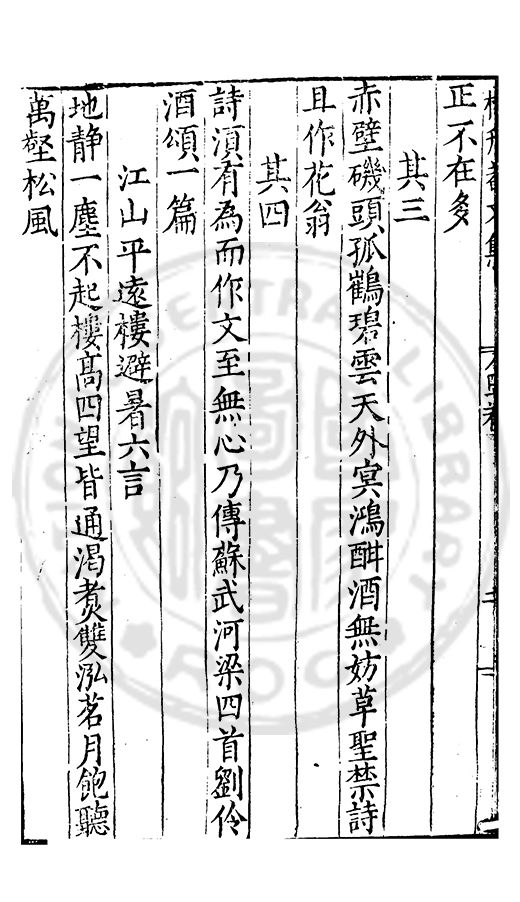 正不在多
其三
赤壁磯頭孤鶴碧雲天外㝠鴻酣酒無妨草聖禁詩
且作花翁
其四
詩湏有為而作文至無心乃傳蘇武河梁四首劉伶
酒頌一篇
江山平遠樓避暑六言
地静一塵不起樓髙四望皆通渴煑雙泓茗月飽聽
萬壑松風